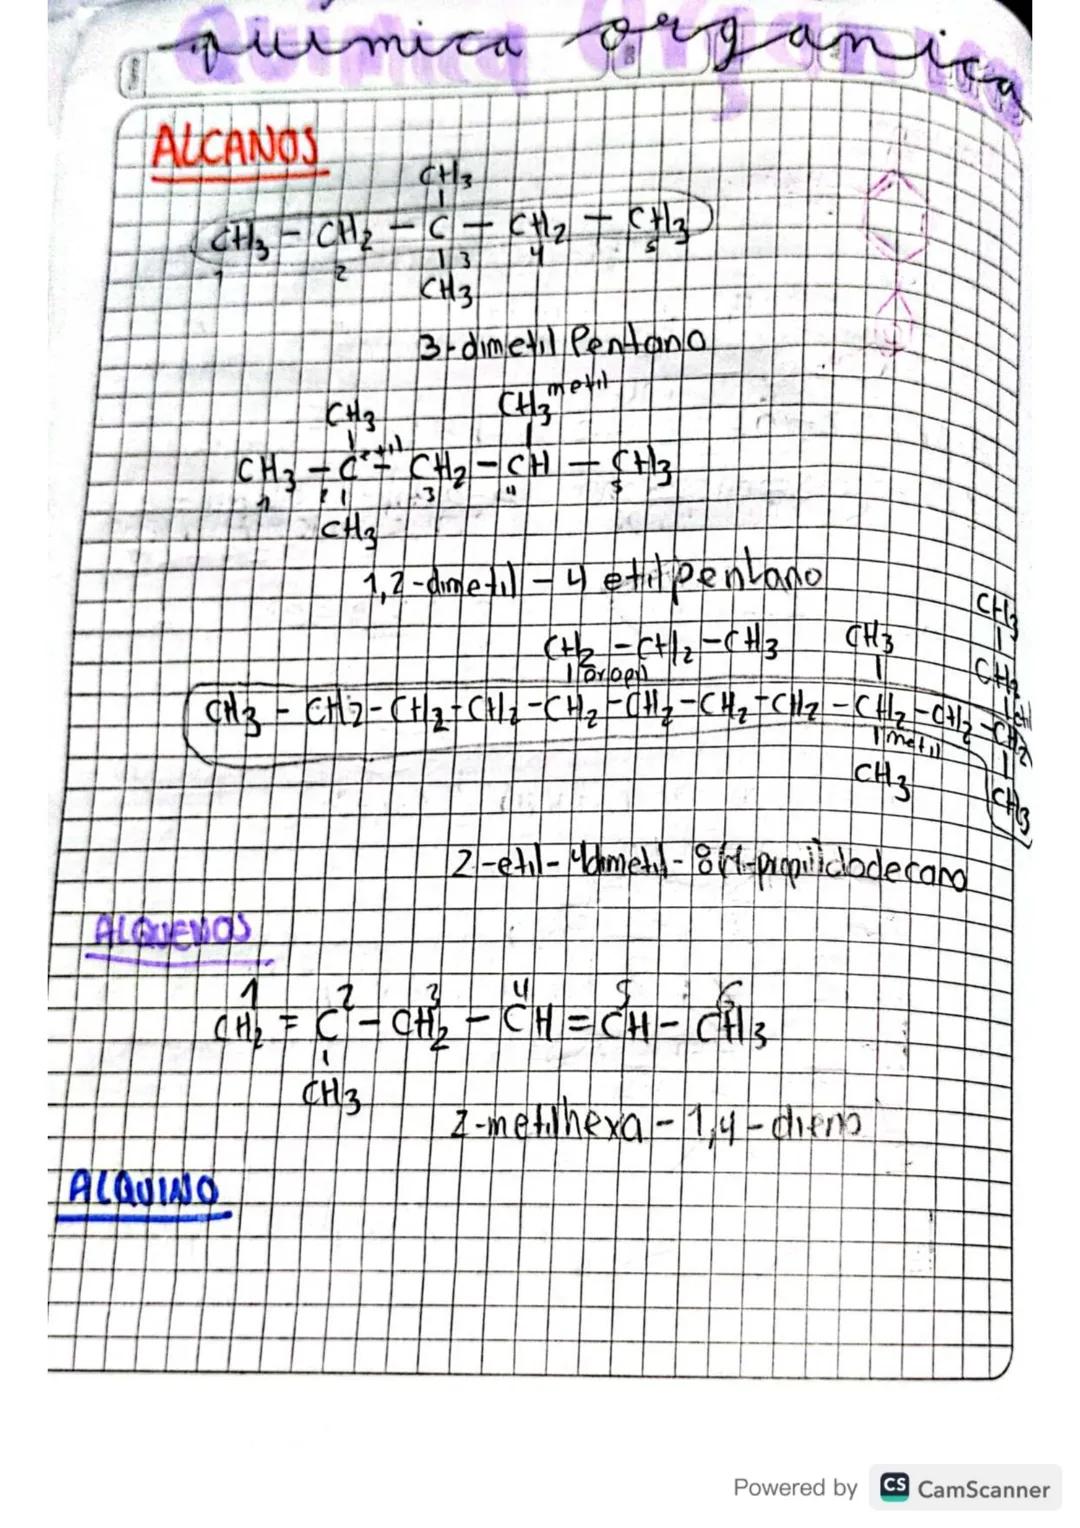 química orgánica
ALCANOS
CH3
CH3 - CH2 - C - CH2 - CH3
1 2 3 4 5
CH3
3-dimetil Pentano
CH3 CH3 metil
CH3 - C - CH2 - CH - CH3
1 2 3 4 5
CH3
1,2-dimetil - 4 etil pentano
CH3
CH2 - CH2 - CH3 CH3
propil CH2
CH3 - CH2 - CH2 - CH2 - CH2 - CH2 - CH2 - CH2 - CH2 - CH2 - CH2
metil
CH3 CH3
2-etil- 4dimetil- propil
ALQUENOS
1 2 3 4 5 6
CH2 = C - CH2 - CH = CH - CH3
CH3
2-metilhexa - 1,4 - dieno
ALQUINO
Powered by CS CamScanner